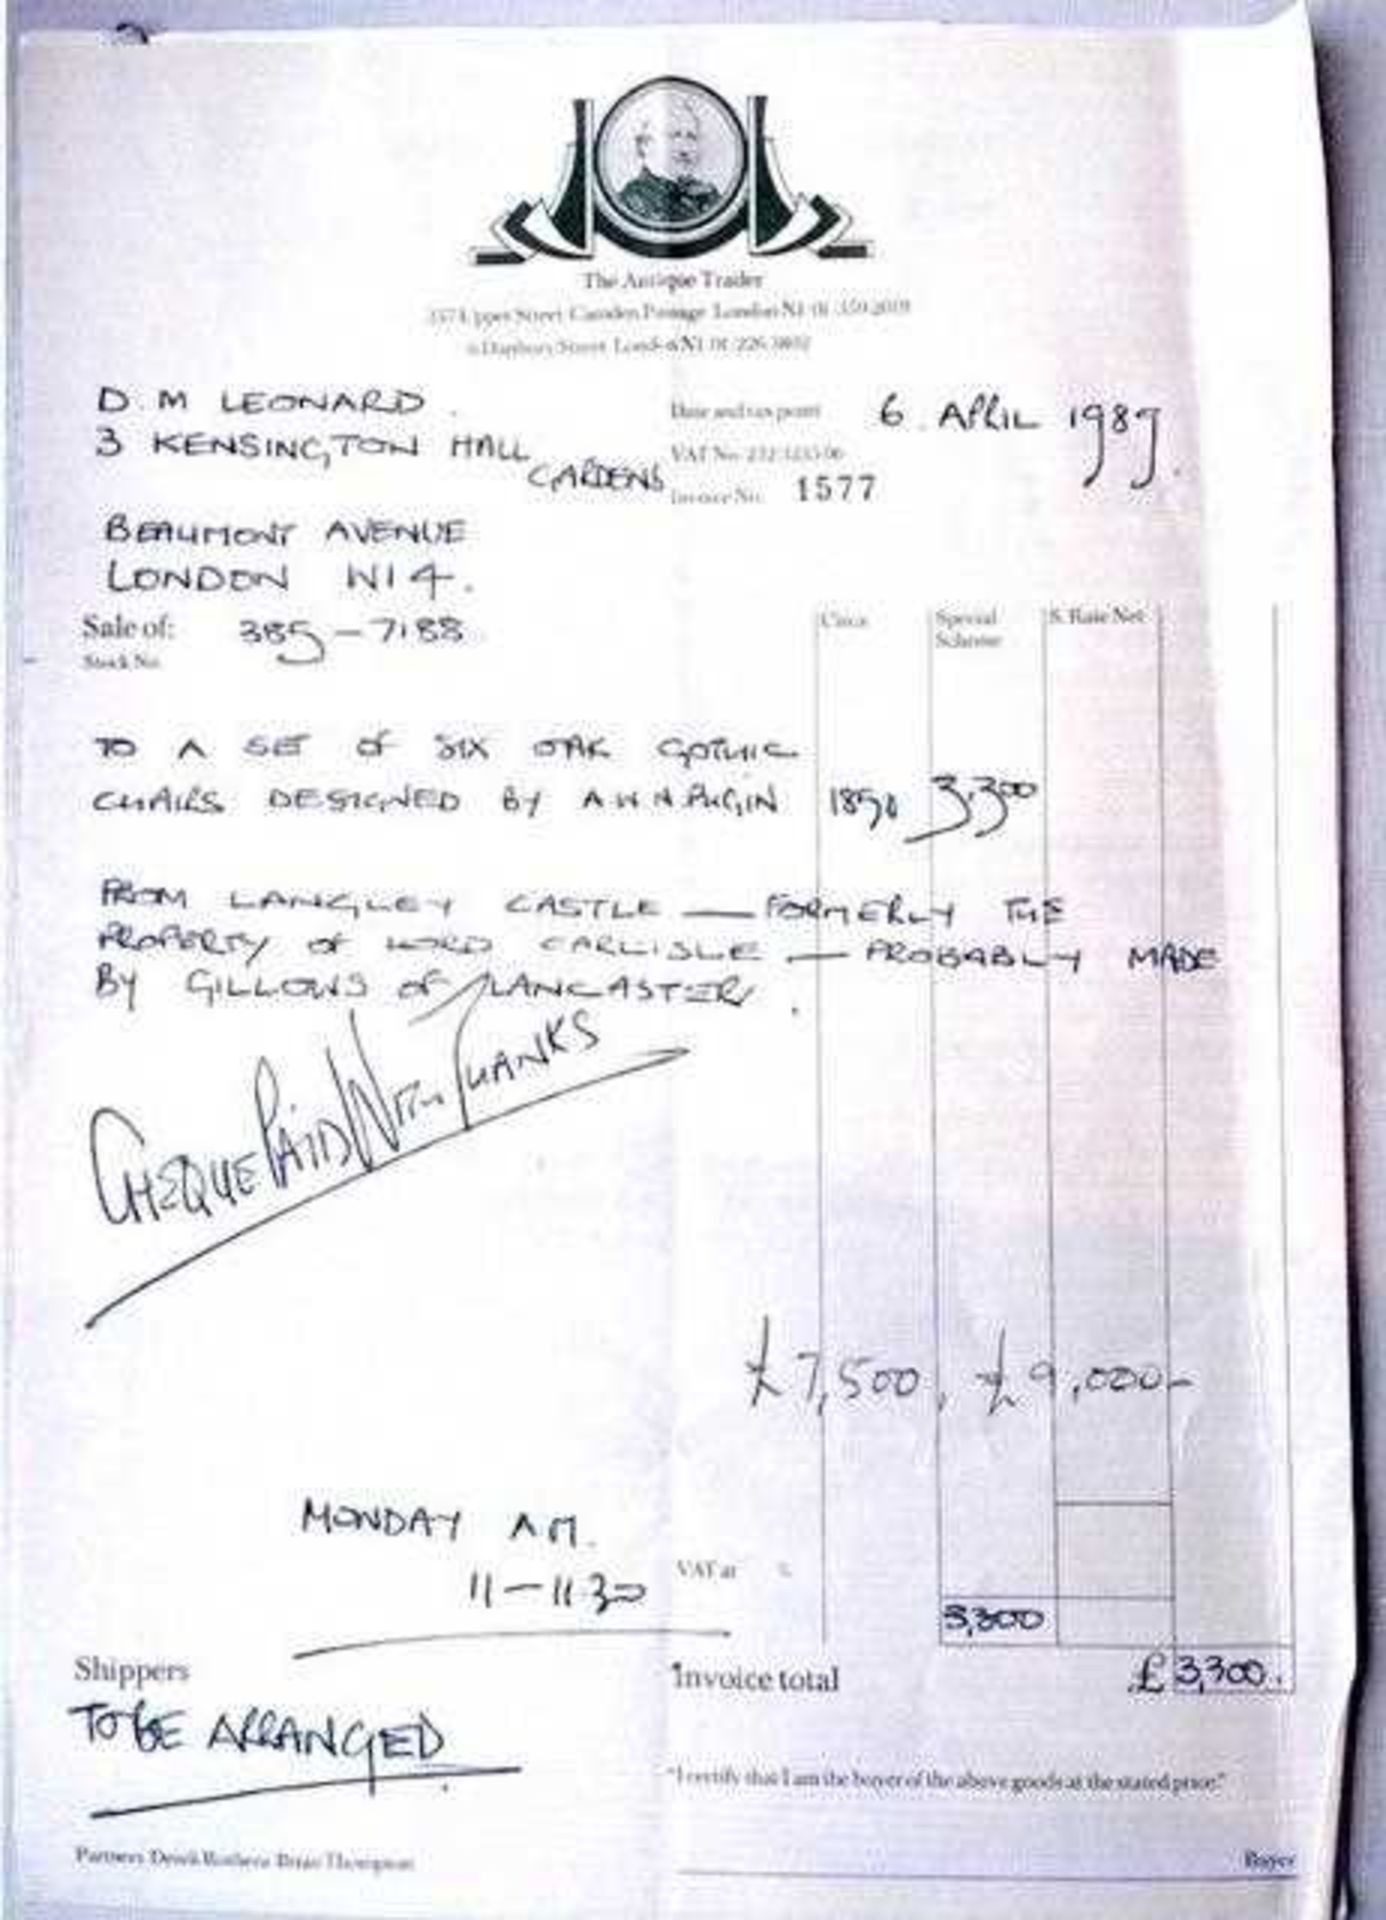 The Antique Trader
Upper Street Camden Passage London N1 01 359 2019
Street London N1 01 226
D. M LEONARD.
3 KENSINGTON HALL
GARDENS
BEAUMONT AVENUE
LONDON W14.
Date and tax point 6. APRIL 1989.
VAT No
Invoice No. 1577
Sale of: 385-7188
Stock No.
Circa
Special Scheme
S. Rate Net
TO A SET OF SIX OAK GOTHIC
CHAIRS DESIGNED BY A W N PUGIN 1850 3,300
FROM LANGLEY CASTLE — FORMERLY THE
PROPERTY OF LORD CARLISLE — PROBABLY MADE
BY GILLOWS OF LANCASTER.
CHEQUE PAID WITH THANKS
£7,500, £9,000-
MONDAY AM.
11-11.30
VAT at %
3,300
Shippers
TO BE ARRANGED.
Invoice total £3,300.
"I certify that I am the buyer of the above goods at the stated price."
Partners Derek Rothera Brian Thompson
Buyer